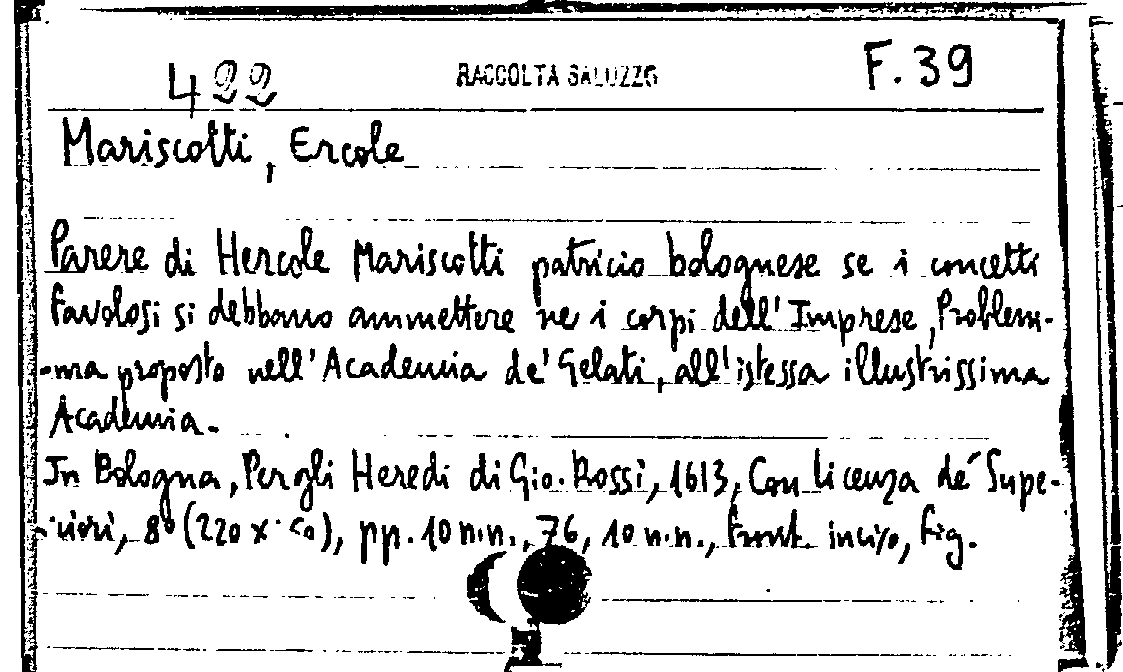 422 RACCOLTA SALUZZO F. 39
Mariscotti, Ercole
Parere di Hercole Mariscotti patricio bolognese se i concetti
favolosi si debbano ammettere ne i corpi dell' Imprese, Problem-
-ma proposto nell'Academia de' Gelati, all'istessa illustrissima
Academia.
In Bologna, Per gli Heredi di Gio. Rossi, 1613, Con licenza de' Supe-
-riori, 8° (220 x), pp. 10 n.n., 76, 10 n.n., front. inciso, fig.